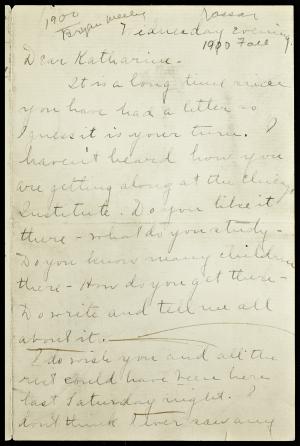 1900
Bryan meeting
Vassar
Wednesday evening.
1900 Fall
Dear Katharine.
It is a long time since
you have had a letter so
I guess it is your turn. I
haven't heard how you
are getting along at the
Institute. Do you like it
there - what do you study -
Do you know many children
there - How do you get there -
Do write and tell me all
about it.
I do wish you and all the
rest could have been here
last Saturday night. I
don't think I ever saw any